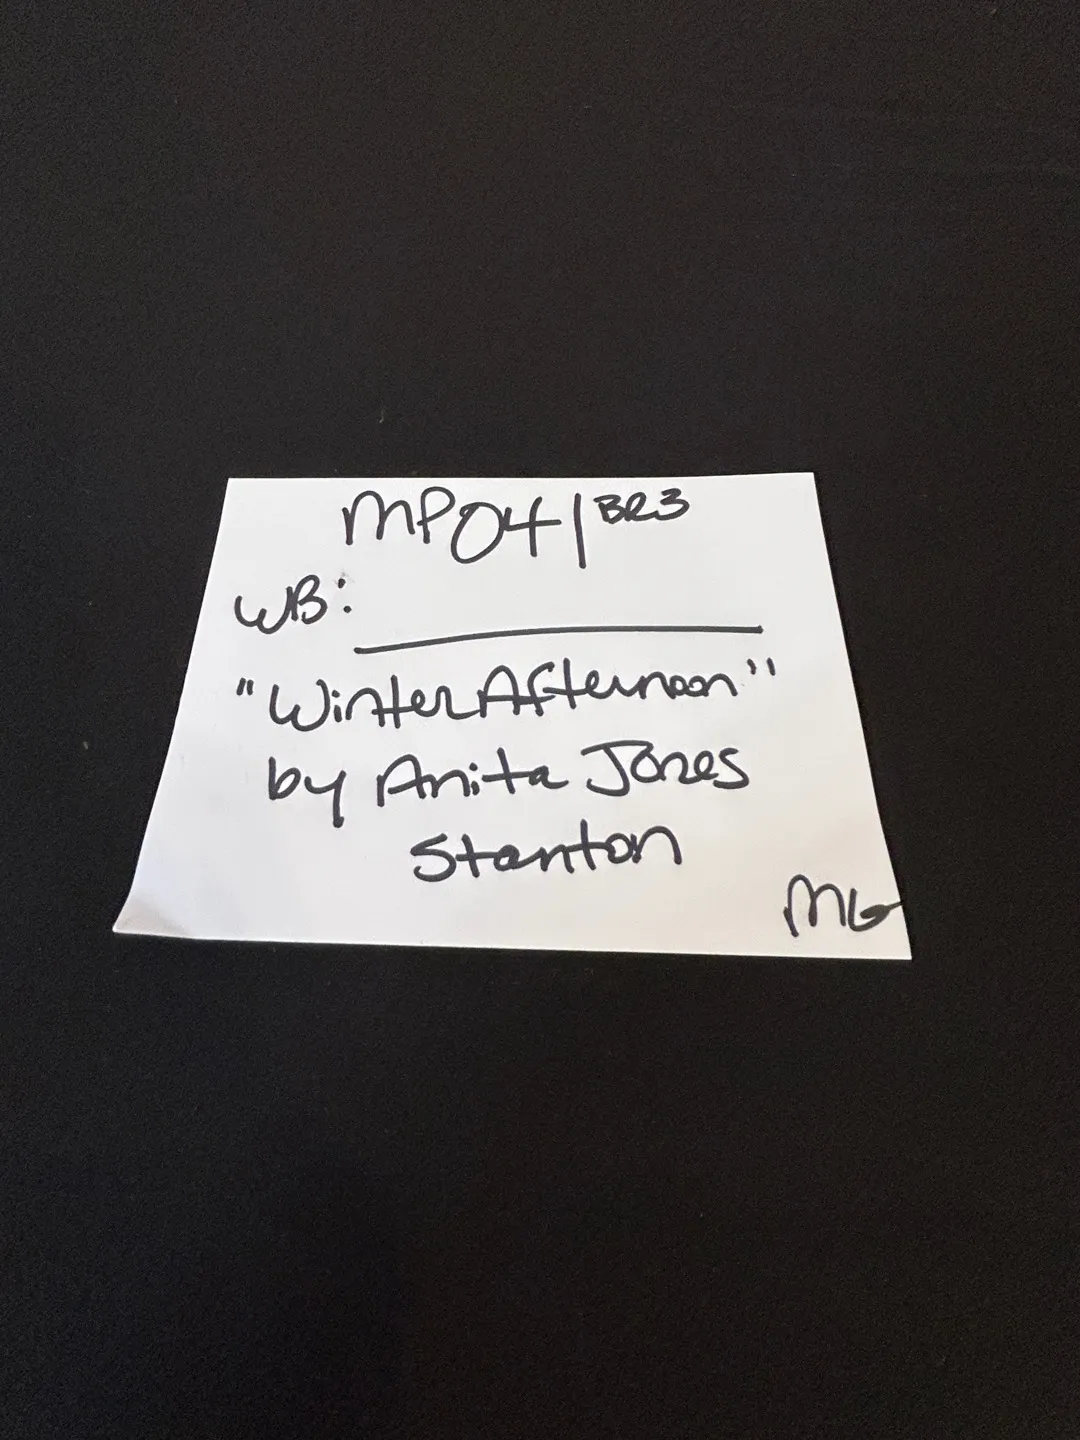 MP04 | BR3
WB: ____________
"Winter Afternoon"
by Anita Jones
Stanton
MG